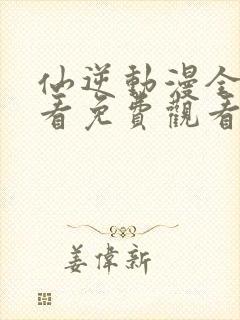 仙逆動漫全
看免費觀看
姜偉新